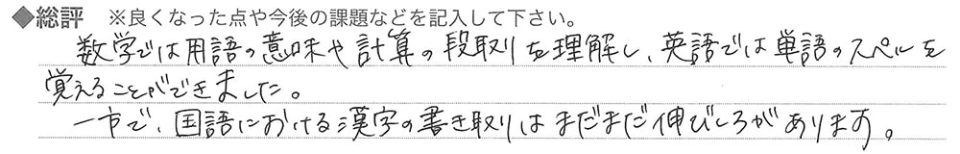 ◆総評 ※良くなった点や今後の課題などを記入して下さい。
数学では用語の意味や計算の段取りを理解し、英語では単語のスペルを
覚えることができました。
一方で、国語における漢字の書き取りはまだまだ伸びしろがあります。